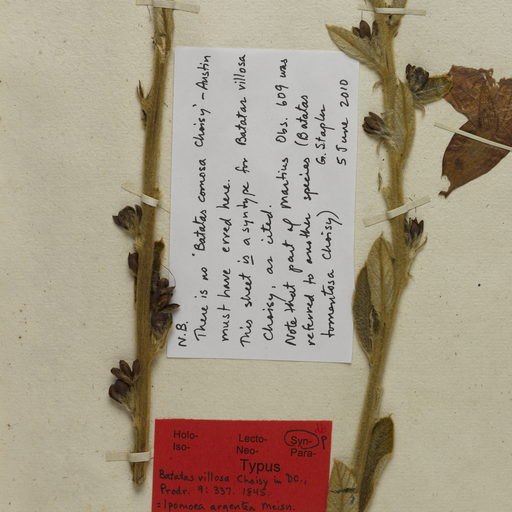 N.B.
There is no 'Batatas comosa Choisy' - Austin
must have erred here.
This sheet is a syntype for Batatas villosa
Choisy, as cited.
Note that part of Martius Obs. 609 was
referred to another species (Batatas
tomentosa Choisy)
G. Staples
5 June 2010
Holo- Lecto- Syn-
Iso- Neo- Para-
Typus
Batatas villosa Choisy in DC.,
Prodr. 9: 337. 1845.
= Ipomoea argentea Meisn.